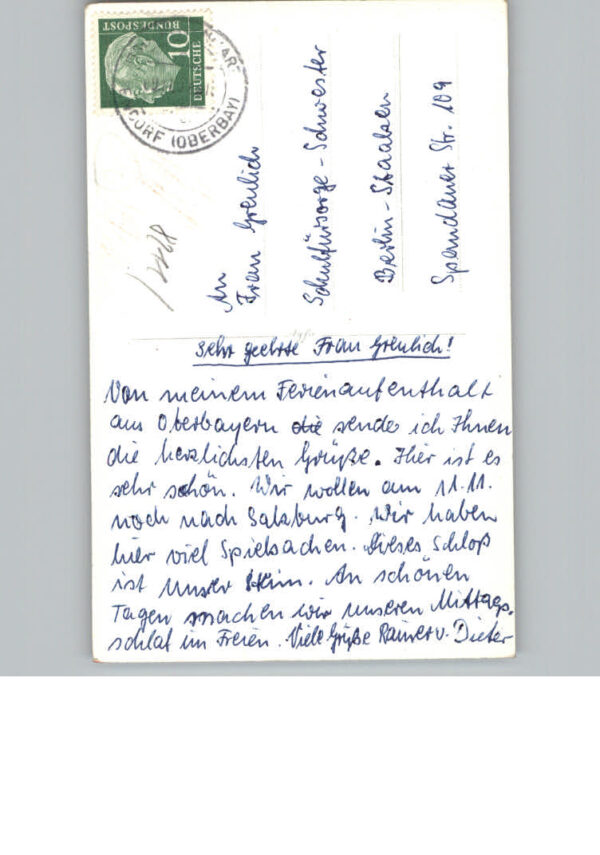 10
DEUTSCHE
BUNDESPOST
DORF (OBERBAY)
An
Frau Greulich
Schulfürsorge-Schwester
Berlin-Staaken
Spandauer Str. 109
Sehr geehrte Frau Greulich!
Von meinem Ferienaufenthalt
aus Oberbayern die sende ich Ihnen
die herzlichsten Grüße. Hier ist es
sehr schön. Wir wollen am 11.11.
noch nach Salzburg. Wir haben
hier viel Spielsachen. Dieses Schloß
ist unser Heim. An schönen
Tagen machen wir unseren Mittags-
schlaf im Freien. Viele Grüße Rainer u. Dieter